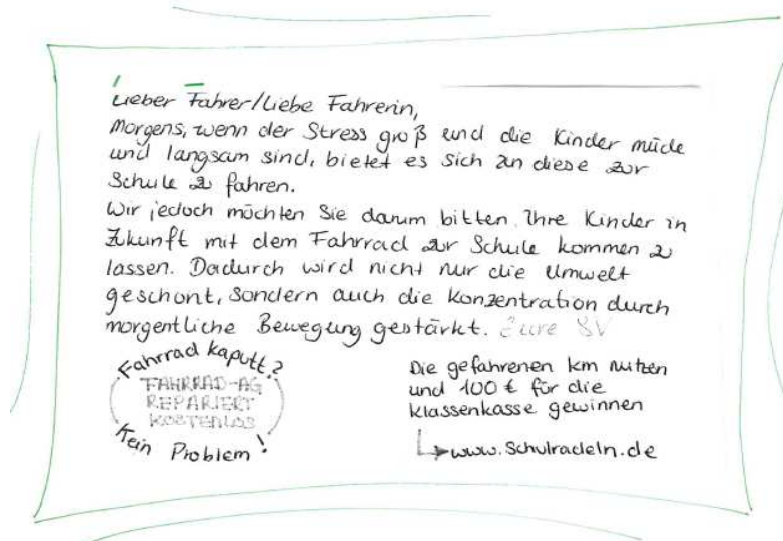 Lieber Fahrer/Liebe Fahrerin,
Morgens, wenn der Stress groß und die Kinder müde
und langsam sind, bietet es sich an diese zur
Schule zu fahren.
Wir jedoch möchten Sie darum bitten, Ihre Kinder in
Zukunft mit dem Fahrrad zur Schule kommen zu
lassen. Dadurch wird nicht nur die Umwelt
geschont, sondern auch die Konzentration durch
morgentliche Bewegung gestärkt. Eure SV
Fahrrad kaputt?
FAHRRAD-AG
REPARIERT
KOSTENLOS
Kein Problem!
Die gefahrenen km nutzen
und 100 € für die
Klassenkasse gewinnen
www.Schulradeln.de